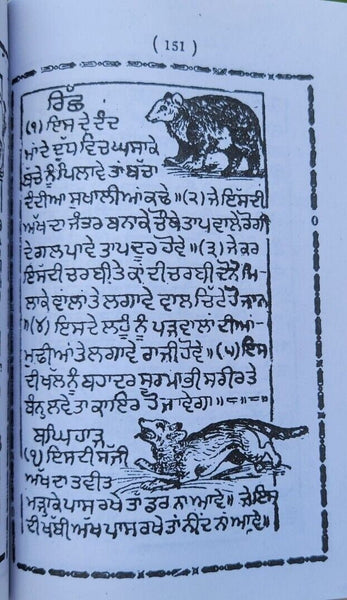 ( 151 )
ਰਿੱਛ
(੧) ਇਸ ਦੇ ਦੰਦ
ਮਾਂ ਦੇ ਦੁੱਧ ਵਿਚ ਘਸਾਕੇ
ਬਚੇ ਨੂੰ ਪਿਲਾਵੇ ਤਾਂ ਬੱਚਾ
ਦੰਦੀਆ ਸੁਖਾਲੀਆਂ ਕਢੇ॥ (੨) ਜੇ ਇੱਸਦੀ
ਅੱਖ ਦਾ ਜੰਤਰ ਬਨਾਕੇ ਚੌਥੇ ਤਾਪ ਵਾਲੇ ਰੋਗੀ
ਦੇ ਗਲ ਪਾਵੇ ਤਾਪ ਦੂਰ ਹੋਵੇ॥ (੩) ਜੇ ਕਰ
ਇੱਸਦੀ ਚਰਬੀ ਤੇ ਕਾਂ ਦੀ ਚਰਬੀ ਦੋਨੋਂ ਮਿ-
ਲਾਕੇ ਵਾਲਾਂ ਤੇ ਲਗਾਵੇ ਵਾਲ ਚਿੱਟੇ ਹੋ ਜਾਨ
॥ (੪) ਇਸਦੇ ਲਹੂ ਨੂੰ ਪੜਵਾਲਾਂ ਦੀਆਂ
ਤੇ ਲਗਾਵੇ ਰਾਜੀ ਹੋਵੇ॥ (੫) ਇਸ
ਦੀ ਖੱਲ ਨੂੰ ਬਹਾਦਰ ਸੂਰਮਾ ਭੀ ਸਰੀਰ ਤੇ
ਬੰਨ ਲਵੇ ਤਾ ਕਾਇਰ ਹੋ ਜਾਵੇਗਾ॥
ਬਘਿਹਾੜ
(੧) ਇਸਦੀ ਸੱਜੀ
ਅੱਖ ਦਾ ਤਵੀਤ
ਮੜ੍ਹਾਕੇ ਪਾਸ ਰਖੇ ਤਾਂ ਡਰ ਨਾ ਆਵੇ॥ ਜੇ ਇਸ
ਦੀ ਖੱਬੀ ਅੱਖ ਪਾਸ ਰਖੇ ਤਾਂ ਨੀਂਦ ਨਾਂ ਆਵੇ॥